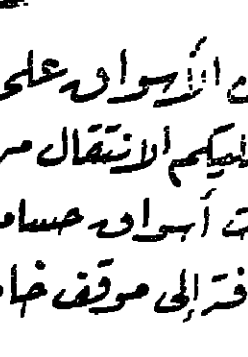 الأسواق على
عليكم الانتقال من
أسواق حسام
إلى موقف خا